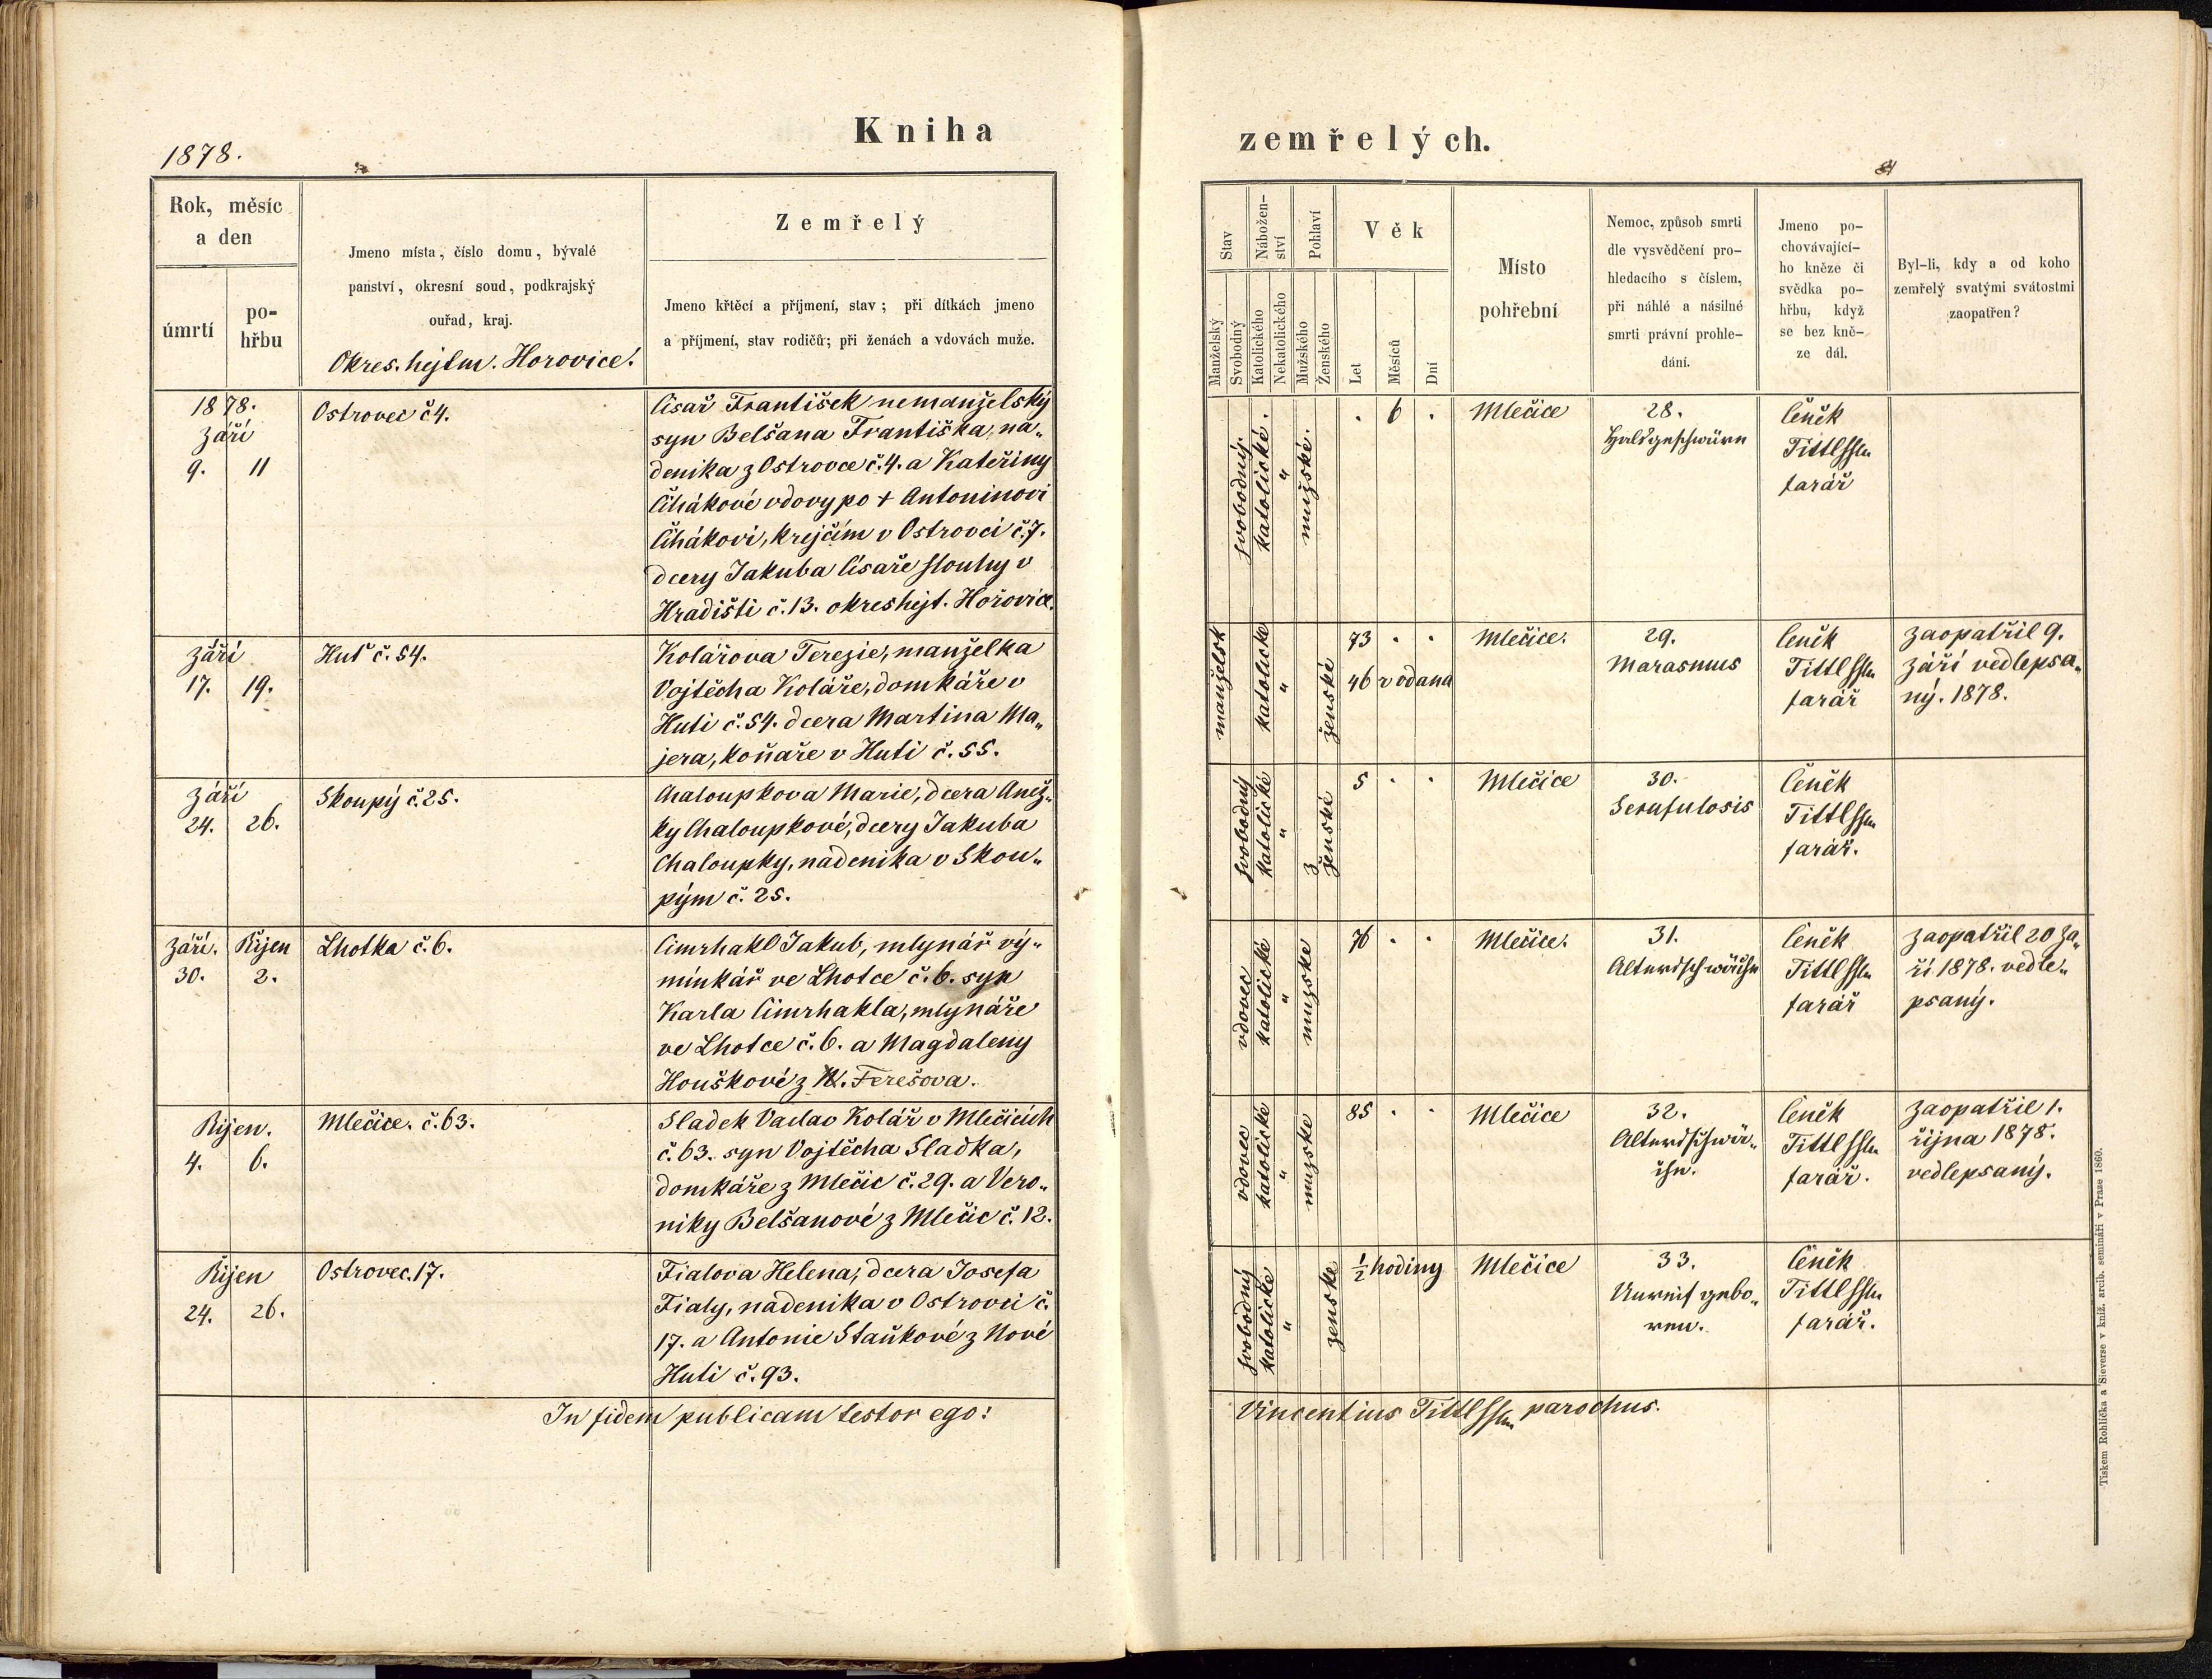 Kniha
1878.
Rok, měsíc
a den
úmrtí
po-
hřbu
Jmeno místa, číslo domu, bývalé
panství, okresní soud, podkrajský
ouřad, kraj.
Okres. hejtm. Horovice.
Zemřelý
Jmeno křtěcí a příjmení, stav; při dítkách jmeno
a příjmení, stav rodičů; při ženách a vdovách muže.
1878.
Září
9. 11
Ostrovec č 4.
Císař František nemanželský
syn Belšana Františka, ná„
denika z Ostrovce č. 4. a Kateřiny
Čihákové vdovy po + Antoninovi
Čihákovi, krejčím v Ostrovci č. 7.
dcery Jakuba Císaře slouhy v
Hradišti č. 13. okres hejt. Hořovice.
Září
17. 19.
Huť č. 54.
Kolářova Terezie, manželka
Vojtěcha Koláře, domkáře v
Huti č. 54. dcera Martina Ma„
jera, koňaře v Huti č. 55.
Září
24. 26.
Skoupý č. 25.
Chaloupkova Marie, dcera Anež„
ky Chaloupkové, dcery Jakuba
Chaloupky, nadenika v Skou„
pým č. 25.
Září. Říjen
30. 2.
Lhotka č. 6.
Cimrhakl Jakub, mlynář vý„
minkář ve Lhotce č. 6. syn
Karla Cimrhakla, mlynáře
ve Lhotce č. 6. a Magdaleny
Houškové z Terešova.
Říjen.
4. 6.
Mlečice. č. 63.
Sladek Vaclav Kolář v Mlečicích
č. 63. syn Vojtěcha Sladka,
domkáře z Mlečic č. 29. a Vero„
niky Belšanové z Mlečic č. 12.
Říjen
24. 26.
Ostrovec. 17.
Fialova Helena, dcera Josefa
Fialy, nadenika v Ostrovci č.
17. a Antonie Staňkové z Nové
Huti č. 93.
In fidem publicam testor ego:
zemřelých.
Stav
Manželský
Svobodný
Nábožen-
ství
Katolického
Nekatolického
Pohlaví
Mužského
Ženského
Věk
Let
Měsíců
Dní
Místo
pohřební
Nemoc, způsob smrti
dle vysvědčení pro-
hledacího s číslem,
při náhlé a násilné
smrti právní prohle-
dání.
Jmeno po-
chovávající-
ho kněze či
svědka po-
hřbu, když
se bez kně-
ze dál.
Byl-li, kdy a od koho
zemřelý svatými svátostmi
zaopatřen?
svobodný.
katolické.
„
mužské.
. 6 .
Mlečice
28.
Halsgeschwüre
Čeněk
Tittl
farář
manželsk
katolické
„
ženské
73 . .
46 r vodana
Mlečice.
29.
Marasmus
Čeněk
Tittl
farář
Zaopatřil 9.
září vedlepsa„
ný. 1878.
svobodný
katolické
„
ženské
5 . .
Mlečice
30.
Scrofulosis
Čeněk
Tittl
farář.
vdovec
katolické
„
mužske
76 . .
Mlečice.
31.
Altersschwäche
Čeněk
Tittl
farář
Zaopatřil 20 Zá„
ří 1878. vedle„
psaný.
vdovec
katolické
„
mužske
85 . .
Mlečice
32.
Altersschwä„
che.
Čeněk
Tittl
farář.
Zaopatřil 1.
října 1878.
vedlepsaný.
svobodný
katolické
„
ženske
½ hodiny
Mlečice
33.
Unreif gebo„
ren.
Čeněk
Tittl
farář.
Vincentius Tittl parochus.
Tiskem Rohlíčka a Sieverse v kníž. arcib. semináři v Praze 1860.